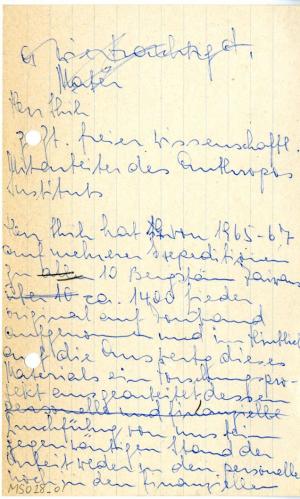 Mater
Herr Shih
z. Zt. freier wissenschaftl.
Mitarbeiter des Anthropos
Instituts
Herr Shih hat von 1965-67
auf mehreren Expeditionen
zu 10 Bergstäm Taiwans
über 10 ca. 1400 Lieder
original auf Tonband
aufgenommen und in Hinblick
auf die Auswertg dieses
Materials ein Forschungspro-
jekt ausgearbeitet dessen
personelle und finanzielle
Durchführg von uns beim
gegenwärtigen Stand der
Arbeit weder in den personellen
noch in den finanziellen
MS018_01